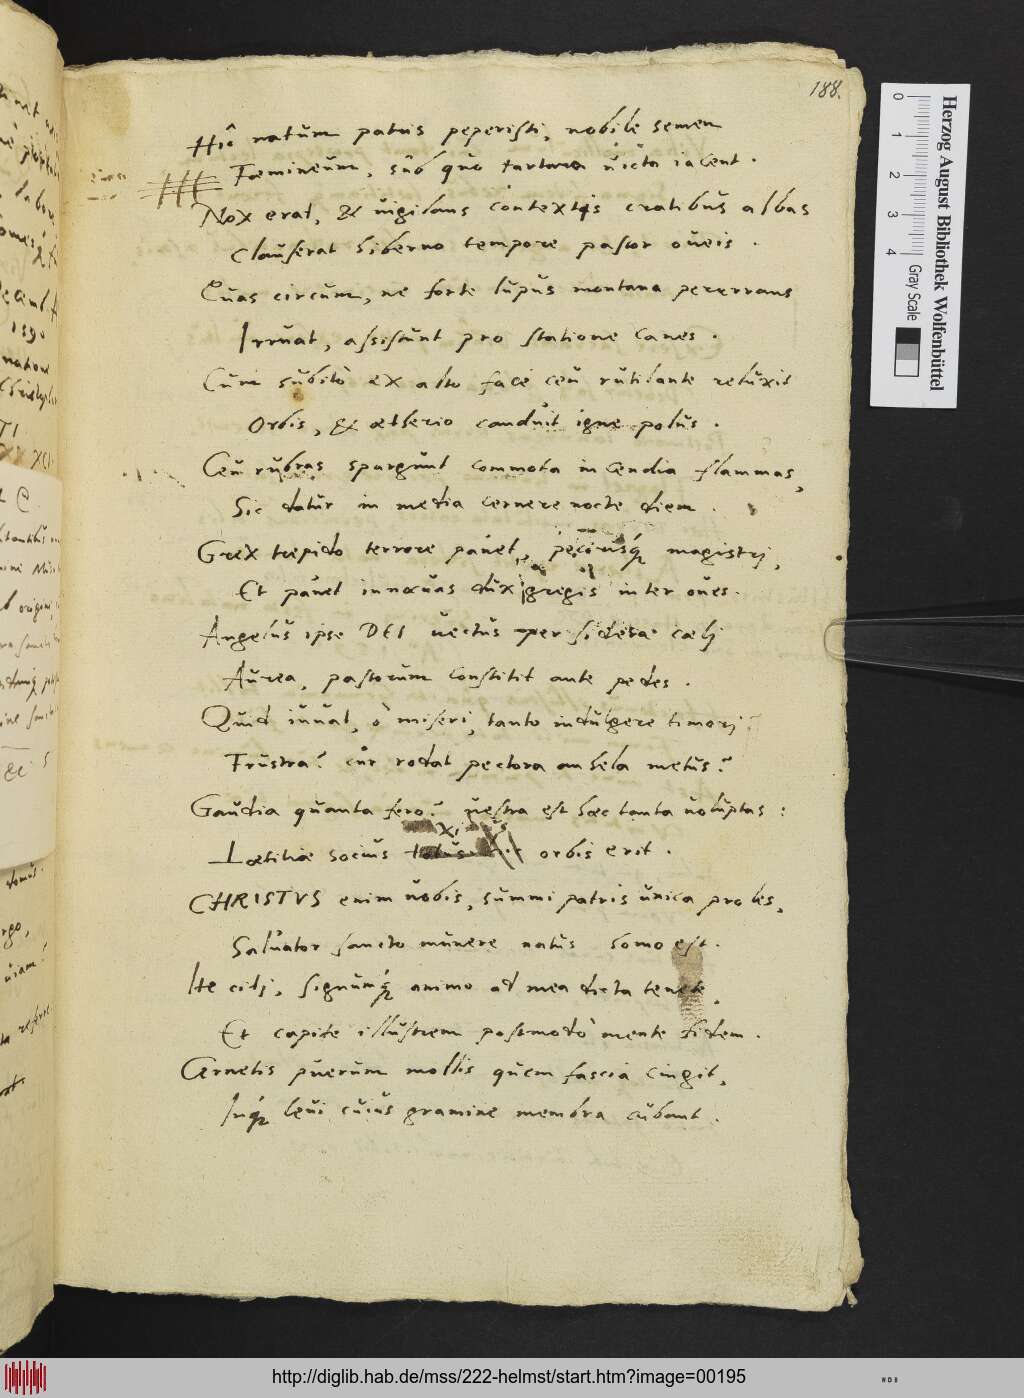 188.
Hic natum patris peperisti, nobile semen
Fœmineum, sub quo tartara victa iacent.
Nox erat, & vigilans contextis cratibus albas
Clauserat hiberno tempore pastor oveis.
Quas circum, ne forte lupus montana pererrans
Irruat, assistunt pro statione canes.
Cum subitò ex alto face ceu rutilante reluxit
Orbis, & ætherio canduit igne polus.
Ceu rubras spargunt commota incendia flammas,
Sic datur in media cernere nocte diem.
Grex trepido terrore pavet, magistri,
Et pavet innocuas dux gregis inter oves.
Angelus ipse DEI vectus per sidera cælj
Aurea, pastorum constitit ante pedes.
Quid iuvat, ô miseri, tanto indulgere timorj?
Frustra? cur rodat pectora anhela metus?
Gaudia quanta fero? vestra est hæc tanta voluptas:
Lætitiæ socius orbis erit.
CHRISTVS enim vobis, summi patris unica proles,
Salvator sancto munere natus homo est.
Ite citj, signumq́ animo ad mea dicta tenete,
Et capite illustrem postmodò mente fidem.
Cernetis puerum mollis quem fascia cingit,
Inq́ levi cuius gramine membra cubant.
Herzog August Bibliothek Wolfenbüttel
0 1 2 3 4 Gray Scale
http://diglib.hab.de/mss/222-helmst/start.htm?image=00195
WDB